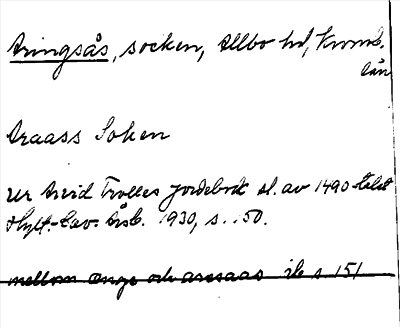 Aringsås, socken, Allbo hd, Kronob.
län
Araass Soken
Ur Arvid Trolles jordebok sl. av 1490-talet
Hylt.-Cav. Årsb. 1930, s. 150.
mellom ænge och aresaas ib s 151